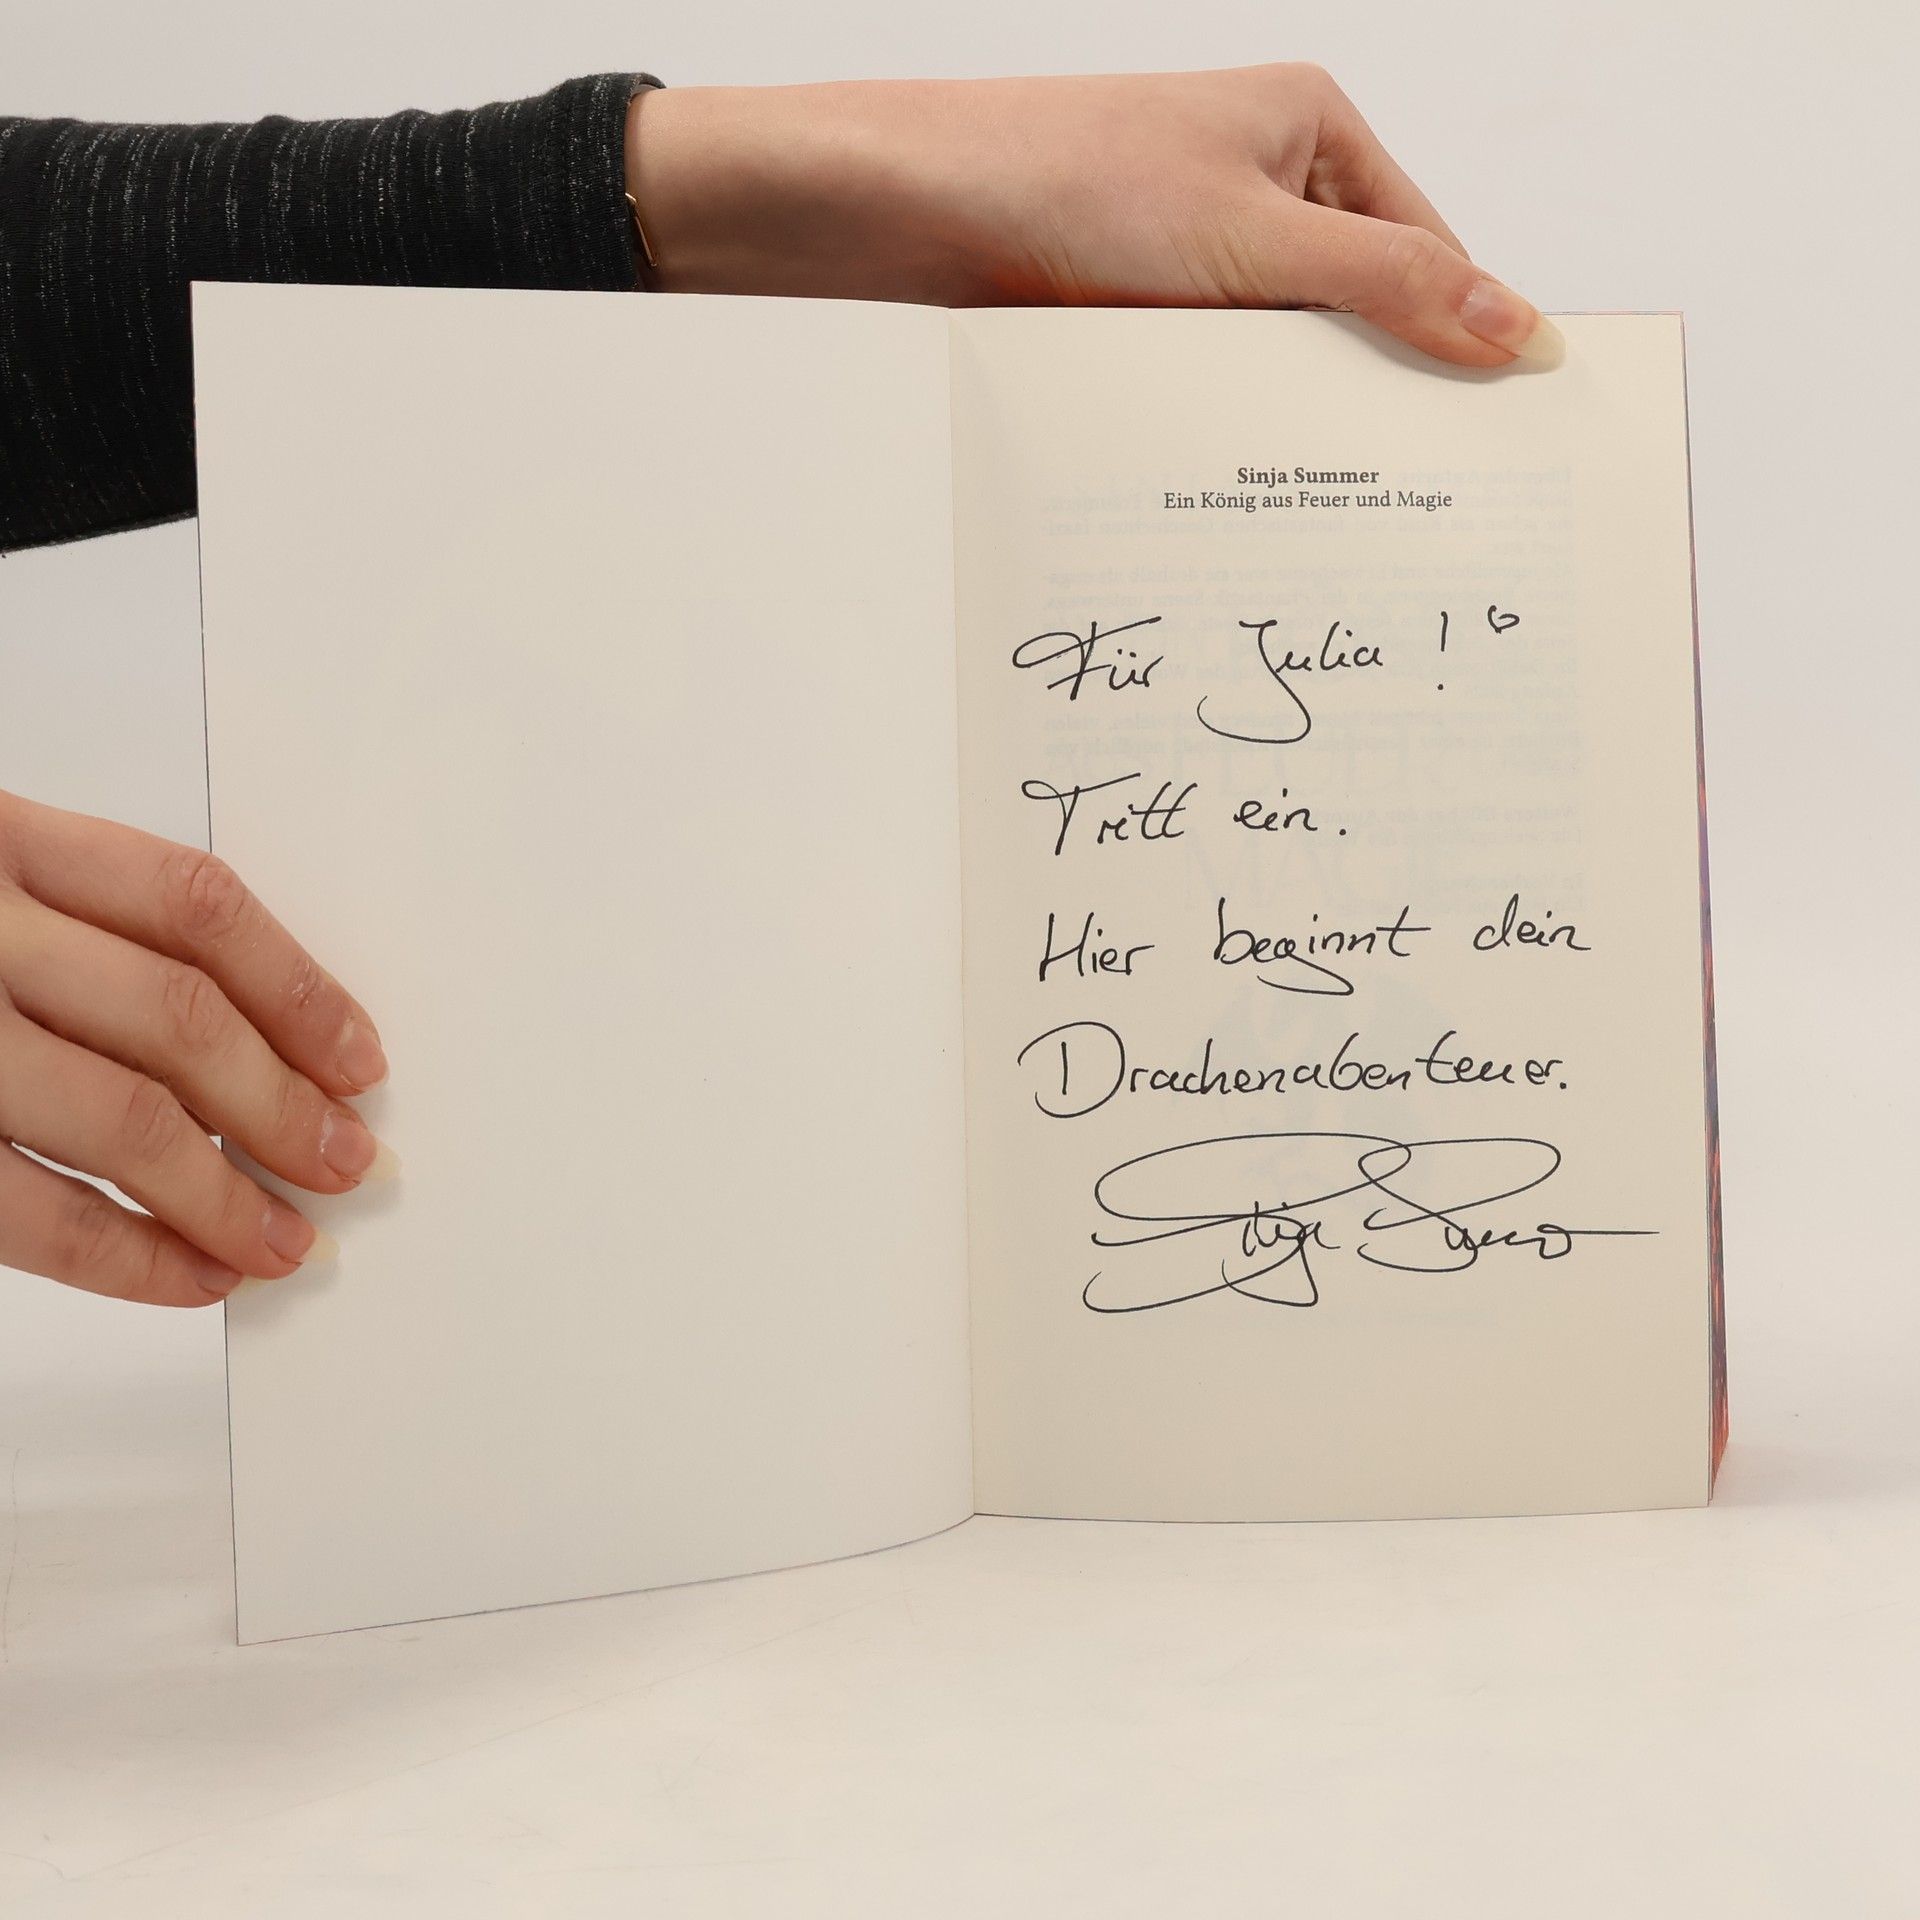 Sinja Summer
Ein König aus Feuer und Magie
Für Julia ! ♡
Tritt ein.
Hier beginnt dein
Drachenabenteuer.
Sinja Summer